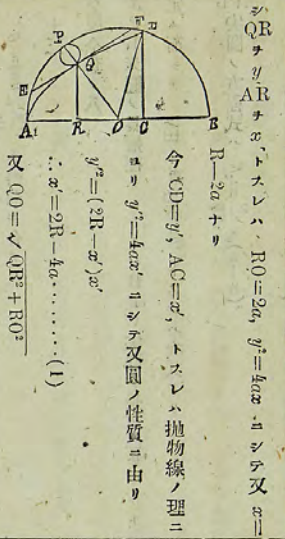 QRヲyARヲx,トスレハRO=2a, y²=4axニシテ又x=
R—2aナリ
今CD=y', AC=x',トスレハ拋物線ノ理ニ
ヨリy'²=4ax'ニシテ又圓ノ性質ニ由リ
y'²=(2R-x')x'
∴x'=2R-4a........(1)
又QO=√QR²+RO²
P
Q
E
A
R
O
C
B